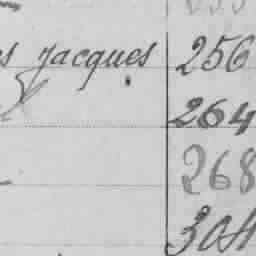 Jacques 256
264
268
304